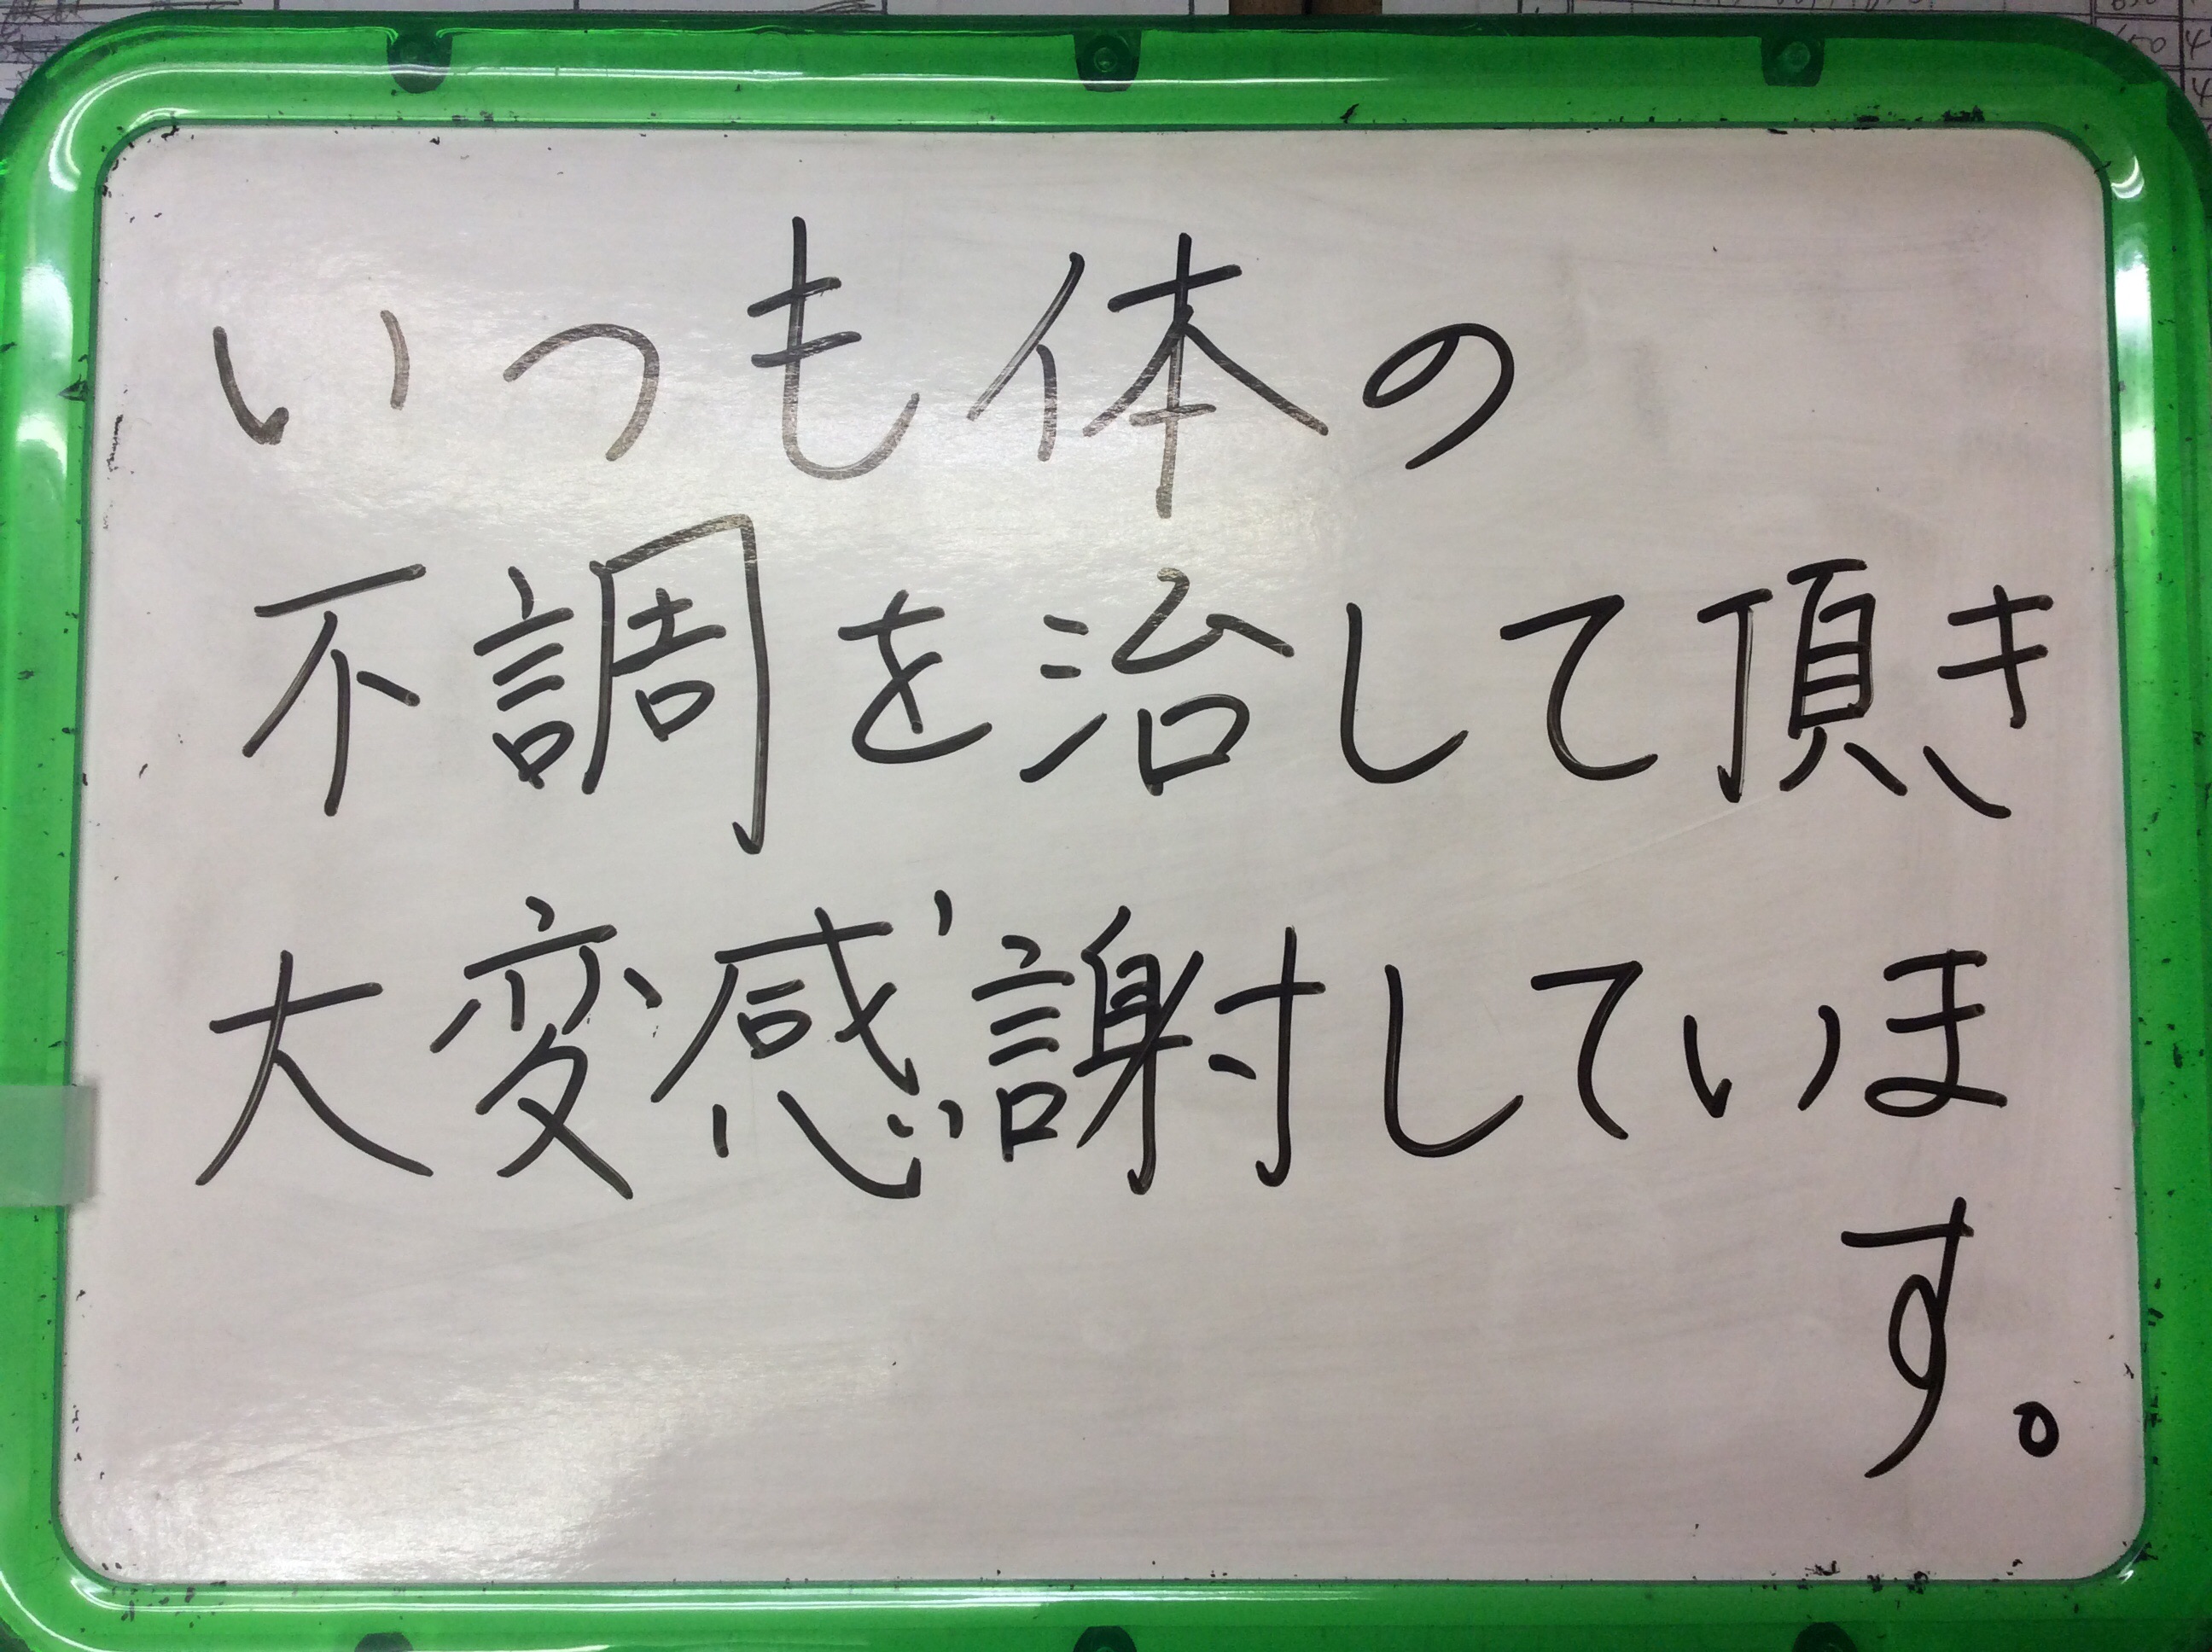 いつも体の
不調を治して頂き
大変感謝していま
す。